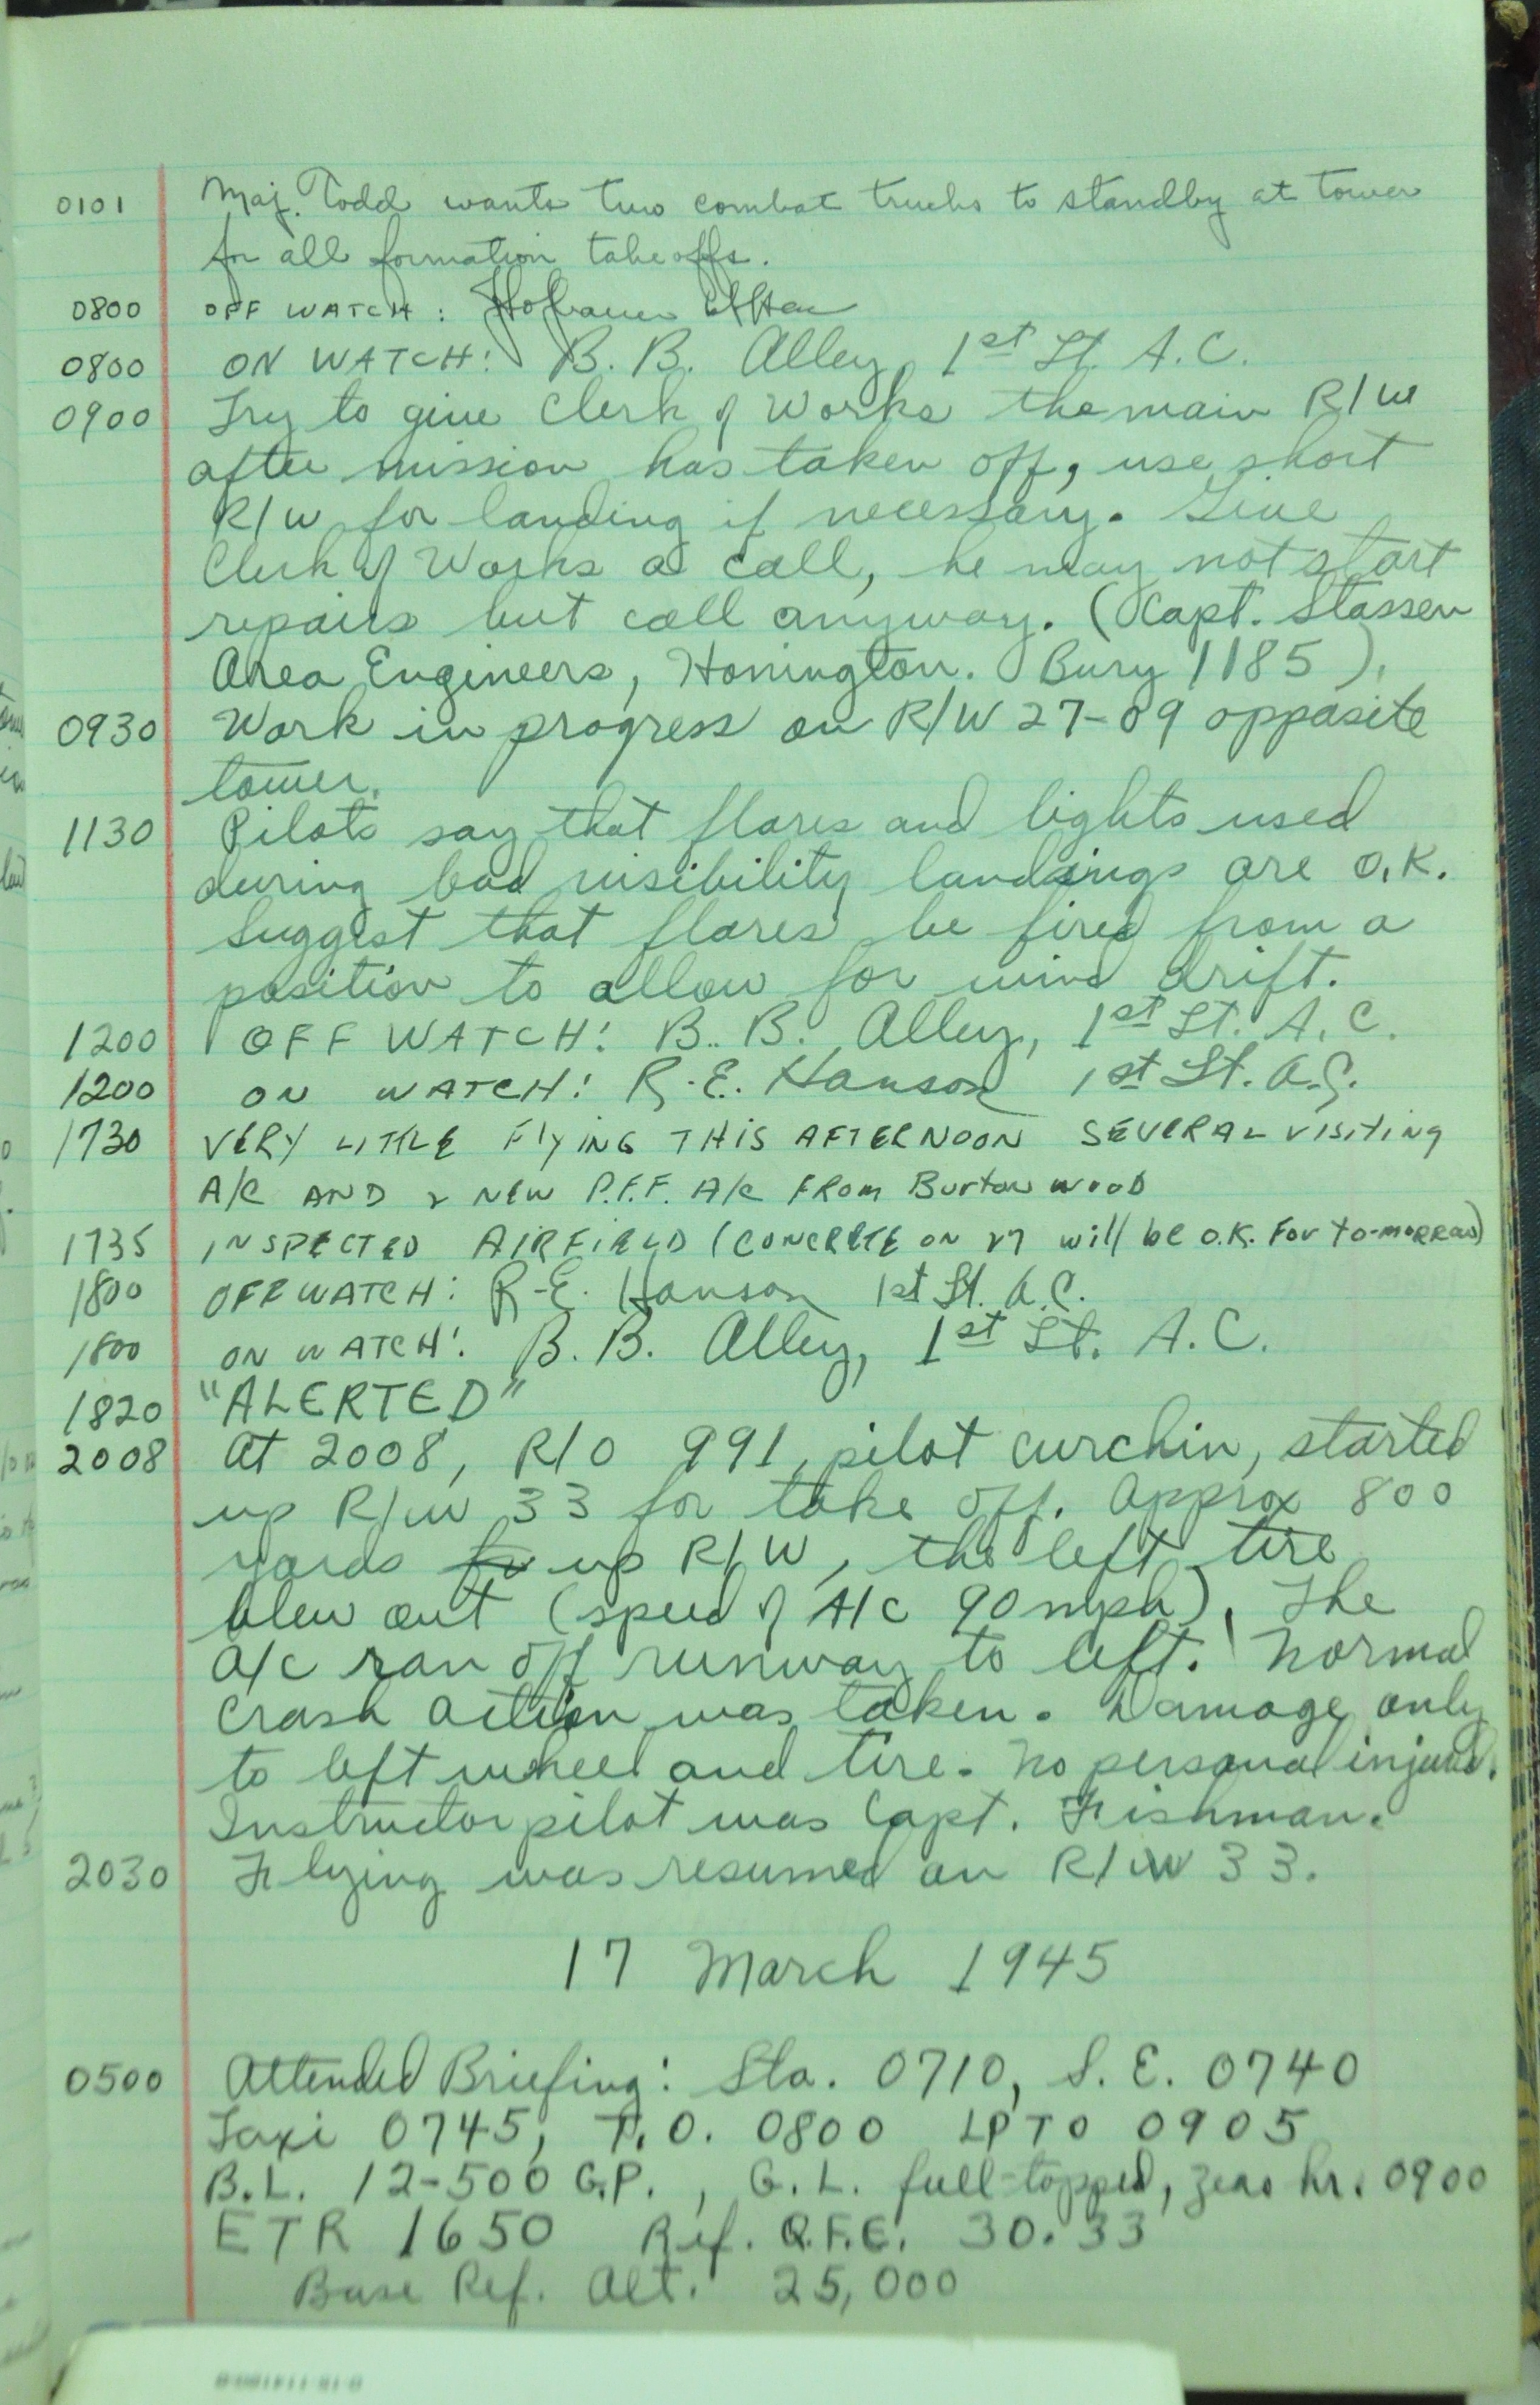 0101 Maj. Todd wants two combat trucks to standby at tower
for all formation takeoffs.
0800 OFF WATCH:
0800 ON WATCH: B. B. Alley, 1st Lt. A.C.
0900 Try to give Clerk of Works the main R/W
after mission has taken off, use short
R/W for landing if necessary. Give
Clerk of Works a call, he may not start
repairs but call anyway. (Capt. Stassen
Area Engineers, Honington. Bury 1185).
0930 Work in progress on R/W 27-09 opposite
tower.
1130 Pilots say that flares and lights used
during bad visibility landings are O.K.
Suggest that flares be fired from a
position to allow for wind drift.
1200 OFF WATCH: B. B. Alley, 1st Lt. A.C.
1200 ON WATCH: R.E. Hanson 1st Lt. A.C.
1730 VERY LITTLE FlyING THIS AFTERNOON SEVERAL VISITING
A/C AND 2 NEW P.F.F. A/C FROM Burton wood
1735 INSPECTED AIRFIELD (CONCRETE ON 27 will be O.K. For to-morrow)
1800 OFF WATCH: R.E. Hanson 1st Lt. A.C.
1800 ON WATCH: B. B. Alley, 1st Lt. A.C.
1820 "ALERTED"
2008 At 2008, R/O 991, pilot Curchin, started
up R/W 33 for take off. Approx 800
yards up R/W, the left tire
blew out (speed of A/C 90 mph). The
a/c ran off runway to left. Normal
crash action was taken. Damage only
to left wheel and tire. No personal injured.
Instructor pilot was Capt. Fishman.
2030 Flying was resumed on R/W 33.
17 March 1945
0500 Attended Briefing: Sta. 0710, S.E. 0740
Taxi 0745, T.O. 0800 LPTO 0905
B.L. 12-500 G.P., G.L. full-topped, zero hr. 0900
ETR 1650 Ref. Q.F.E. 30.33
Base Ref. Alt. 25,000